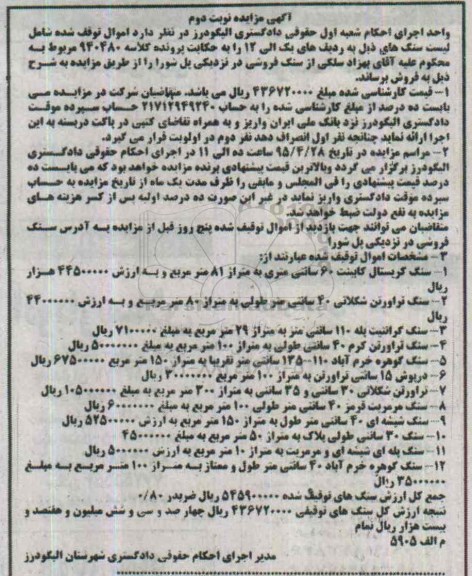 آگهی مزایده نوبت دوم
واحد اجرای احکام شعبه اول حقوقی دادگستری الیگودرز در نظر دارد اموال توقف شده شامل
لیست سنگ های ذیل به ردیف های یک الی ۱۲ را به حکایت پرونده کلاسه ۹۴۰۴۸۰ مربوط به
محکوم علیه آقای بهزاد سلکی از سنگ فروشی در نزدیکی پل شورا را از طریق مزایده به شرح
ذیل به فروش برساند.
۱- قیمت کارشناسی شده مبلغ ۴۳۶۷۲۰۰۰۰ ریال می باشد. متقاضیان شرکت در مزایده می
بایست ده درصد از مبلغ کارشناسی شده را به حساب ۲۱۷۱۲۹۴۹۳۴۰ حساب سپرده موقت
دادگستری الیگودرز نزد بانک ملی ایران واریز و به همراه تقاضای کتبی در پاکت دربسته به این
اجرا ارائه نماید چنانچه نفر اول انصراف دهد نفر دوم در اولویت قرار می گیرد.
۲- مراسم مزایده در تاریخ ۹۵/۴/۲۸ ساعت ده الی ۱۱ در اجرای احکام حقوقی دادگستری
الیگودرز برگزار می گردد وبالاترین قیمت پیشنهادی برنده مزایده خواهد بود که می بایست ده
درصد قیمت پیشنهادی را فی المجلس و مابقی را ظرف مدت یک ماه از تاریخ مزایده به حساب
سپرده موقت دادگستری واریز نماید در غیر این صورت ده درصد اولیه پس از کسر هزینه های
مزایده به نفع دولت ضبط خواهد شد.
متقاضیان می توانند جهت بازدید از اموال توقیف شده پنج روز قبل از مزایده به آدرس سنگ
فروشی در نزدیکی پل شورا
۳- مشخصات اموال توقیف شده عبارتند از:
۱- سنگ کریستال کابینت ۶۰ سانتی متری به متراژ ۸۱ متر مربع و به ارزش ۴۴۵۰۰۰۰۰ هزار
ریال
۲- سنگ تراورتن شکلاتی ۴۰ سانتی متر طولی به متراژ ۸۰ متر مربع و به ارزش ۴۴۰۰۰۰۰۰
ریال
۳- سنگ گرانتیت پله ۱۱۰ سانتی متر به متراژ ۲۹ متر مربع به مبلغ ۷۱۰۰۰۰۰ ریال
۴- سنگ تراورتن کرم ۴۰ سانتی طولی به متراژ ۱۰۰ متر مربع به مبلغ ۵۰۰۰۰۰۰۰ ریال
۵- سنگ گوهره خرم آباد ۱۱۰-۱۳۵ سانتی متر تقریبا به متراژ ۱۵۰ متر مربع ۶۷۵۰۰۰۰۰ ریال
۶- درپوش ۱۵ سانتی تراورتن به متراژ ۱۰۰ متر مربع ۳۰۰۰۰۰۰۰ ریال
۷- تراورتن شکلاتی ۳۰ سانتی و ۳۵ سانتی به متراژ ۳۰۰ متر مربع به مبلغ ۱۰۵۰۰۰۰۰۰ ریال
۸- سنگ مرمریت قرمز ۴۰ سانتی متر طولی ۱۰۰ متر مربع به مبلغ ۶۰۰۰۰۰۰۰ ریال
۹- سنگ شیشه ای ۴۰ سانتی متر طول به متراژ ۱۵۰ متر مربع به ارزش ۵۲۵۰۰۰۰۰ ریال
۱۰- سنگ ۳۰ سانتی طولی پلاک به متراژ ۵۰ متر مربع به مبلغ ۴۵۰۰۰۰۰۰
۱۱- سنگ پله ای شیشه ای و مرمریت به متراژ ۱۰ متر مربع به ارزش ۵۰۰۰۰۰۰ ریال
۱۲- سنگ گوهره خرم آباد ۴۰ سانتی متر طول و ممتاز به متراژ ۱۰۰ متر مربع به مبلغ
۳۵۰۰۰۰۰۰ ریال
جمع کل ارزش سنگ های توقیف شده ۵۴۵۹۰۰۰۰۰ ریال ضربدر ۰/۸۰
نتیجه ارزش کل سنگ های توقیفی ۴۳۶۷۲۰۰۰۰ ریال چهار صد و سی و شش میلیون و هفتصد و
بیست هزار ریال تمام
م الف ۵۹۰۵
مدیر اجرای احکام حقوقی دادگستری شهرستان الیگودرز